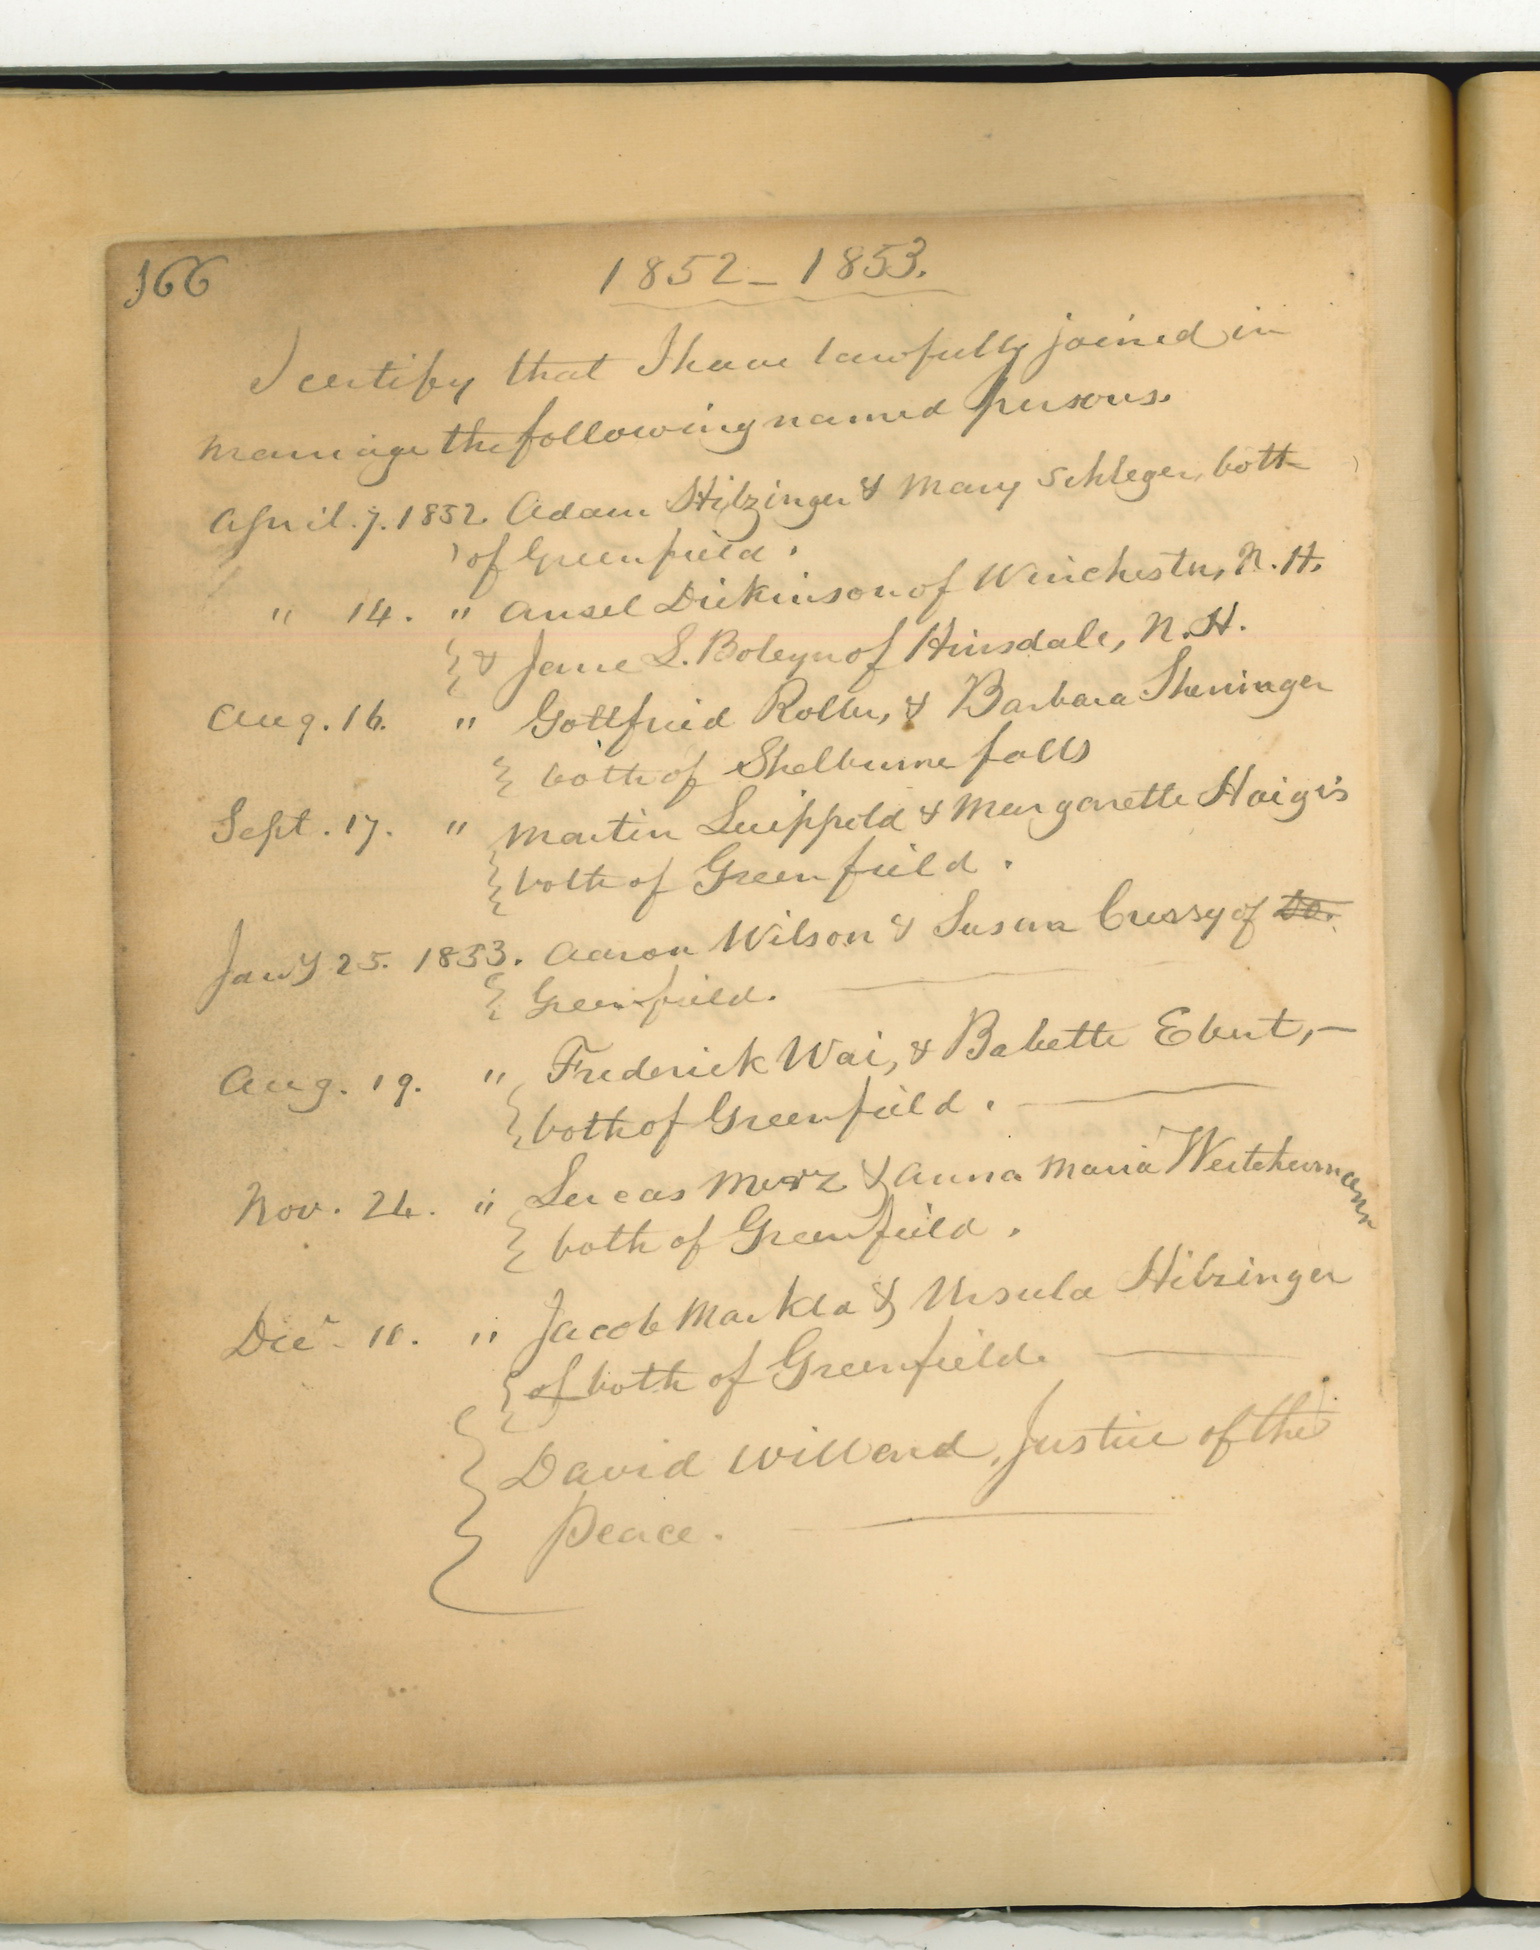 166
1852 - 1853.
I certify that I have lawfully joined in
marriage the following named persons.
April. 7. 1852. Adam Hilzinger & Mary Schleger, both
of Greenfield.
" 14. " Ansel Dickinson of Winchester, N. H.
& Jane L. Boleyn of Hinsdale, N. H.
Aug. 16. " Gottfried Roller, & Barbara Sheninger
both of Shelburne falls
Sept. 17. " Martin Luippold & Margarette Haigis
both of Greenfield.
Jany 25. 1853. Aaron Wilson & Susan Cressy of do.
Greenfield.
Aug. 19. " Frederick Wai, & Babette Ebert, -
both of Greenfield.
Nov. 24. " Lucas Merz & Anna Maria
both of Greenfield.
Decr. 10. " Jacob Markla & Ursula Hilzinger
of both of Greenfield.
David Willard, Justice of the
Peace.